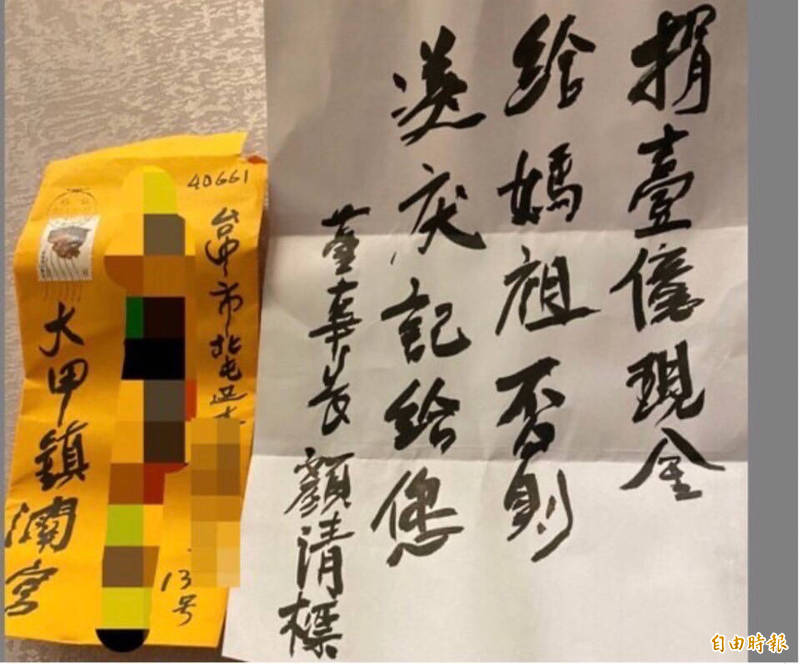 捐壹億現金
給媽祖否則
記給您
董事長 顏清標
40661
台中市北屯
13号
大甲鎮瀾宮
自由時報